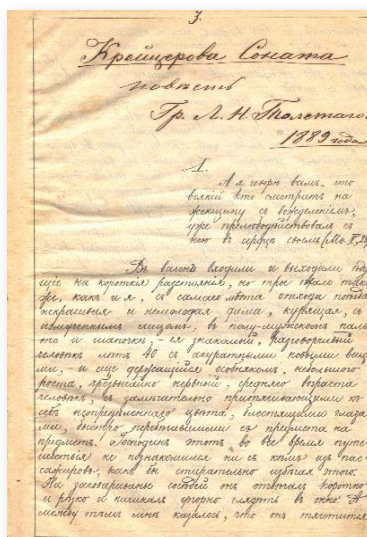 3.
Крейцерова Соната
повѣсть
Гр. Л. Н. Толстаго.
1889 года
1.
А я говорю вамъ, что
всякій кто смотритъ на
женщину съ вожделеніемъ,
уже прелюбодѣйствовалъ съ
нею въ сердцѣ своемъ (Мѳ. V, 28
Въ вагонъ входили и выходили ѣду
щіе на короткія разстоянія, но трое ѣхало так
же, какъ и я, съ самаго мѣста отхода поѣзда
некрасивая и немолодая дама, курящая, съ
измученнымъ лицомъ, въ полу-мужскомъ паль
то и шапочкѣ, - ея знакомый, разговорчивый
человѣкъ лѣтъ 40 съ акуратными новыми веща
ми, - и еще держащійся особнякомъ, небольшого
роста, нервный, средняго возраста
человѣкъ, съ замѣчательно притягивающими къ
себѣ неопредѣленнаго цвѣта, блестящими глаза
ми, быстро перебѣгавшими съ предмета на
предметъ. Господинъ этотъ во все время путе
шествія не познакомился ни съ кѣмъ изъ пас
сажировъ, какъ бы старательно избѣгая этого.
На заговариванье сосѣдей онъ отвѣчалъ коротко
и рѣзко и начиналъ упорно глядѣть въ окно. А
между тѣмъ мнѣ казалось, что онъ тяготится